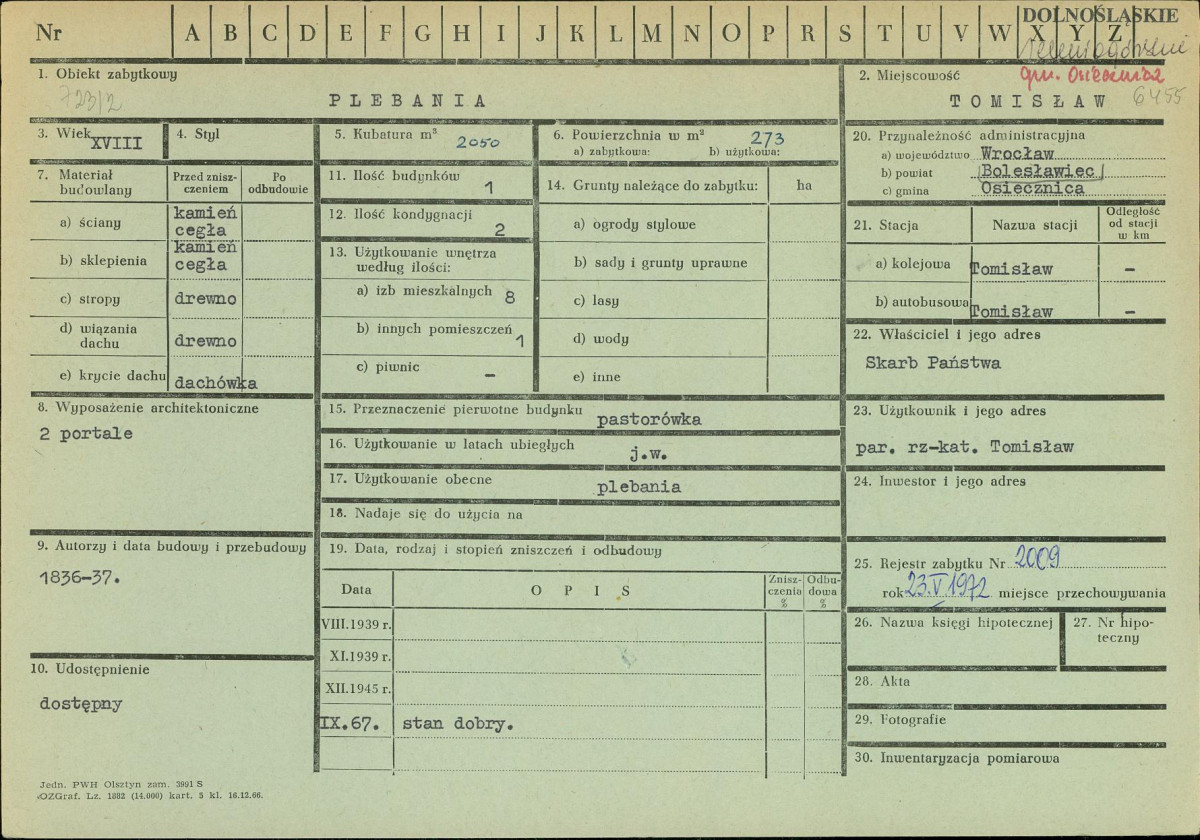 Nr A B C D E F G H I J K L M N O P R S T U V W X Y Z
DOLNOŚLĄSKIE
gm. Osiecznica
1. Obiekt zabytkowy
723/2
PLEBANIA
2. Miejscowość
TOMISŁAW 6455
3. Wiek XVIII
4. Styl
5. Kubatura m³ 2050
6. Powierzchnia w m² 273
a) zabytkowa: b) użytkowa:
7. Materiał budowlany
Przed zniszczeniem
Po odbudowie
a) ściany kamień cegła
b) sklepienia kamień cegła
c) stropy drewno
d) wiązania dachu drewno
e) krycie dachu dachówka
8. Wyposażenie architektoniczne
2 portale
9. Autorzy i data budowy i przebudowy
1836-37.
10. Udostępnienie
dostępny
11. Ilość budynków 1
12. Ilość kondygnacji 2
13. Użytkowanie wnętrza
według ilości:
a) izb mieszkalnych 8
b) innych pomieszczeń 1
c) piwnic –
14. Grunty należące do zabytku: ha
a) ogrody stylowe
b) sady i grunty uprawne
c) lasy
d) wody
e) inne
15. Przeznaczenie pierwotne budynku pastorówka
16. Użytkowanie w latach ubiegłych j.w.
17. Użytkowanie obecne plebania
18. Nadaje się do użycia na
19. Data, rodzaj i stopień zniszczeń i odbudowy
Data OPIS Zniszczenia % Odbudowa %
VIII.1939 r.
XI.1939 r.
XII.1945 r.
IX.67. stan dobry.
20. Przynależność administracyjna
a) województwo Wrocław
b) powiat Bolesławiec
c) gmina Osiecznica
21. Stacja Nazwa stacji Odległość od stacji w km
a) kolejowa Tomisław –
b) autobusowa Tomisław –
22. Właściciel i jego adres
Skarb Państwa
23. Użytkownik i jego adres
par. rz-kat. Tomisław
24. Inwestor i jego adres
25. Rejestr zabytku Nr 2009
rok 23.V 1972 miejsce przechowywania
26. Nazwa księgi hipotecznej
27. Nr hipoteczny
28. Akta
29. Fotografie
30. Inwentaryzacja pomiarowa
Jedn. PWH Olsztyn zam. 3991 S
OZGraf. Lz. 1882 (14.000) kart. 5 kl. 16.12.66.